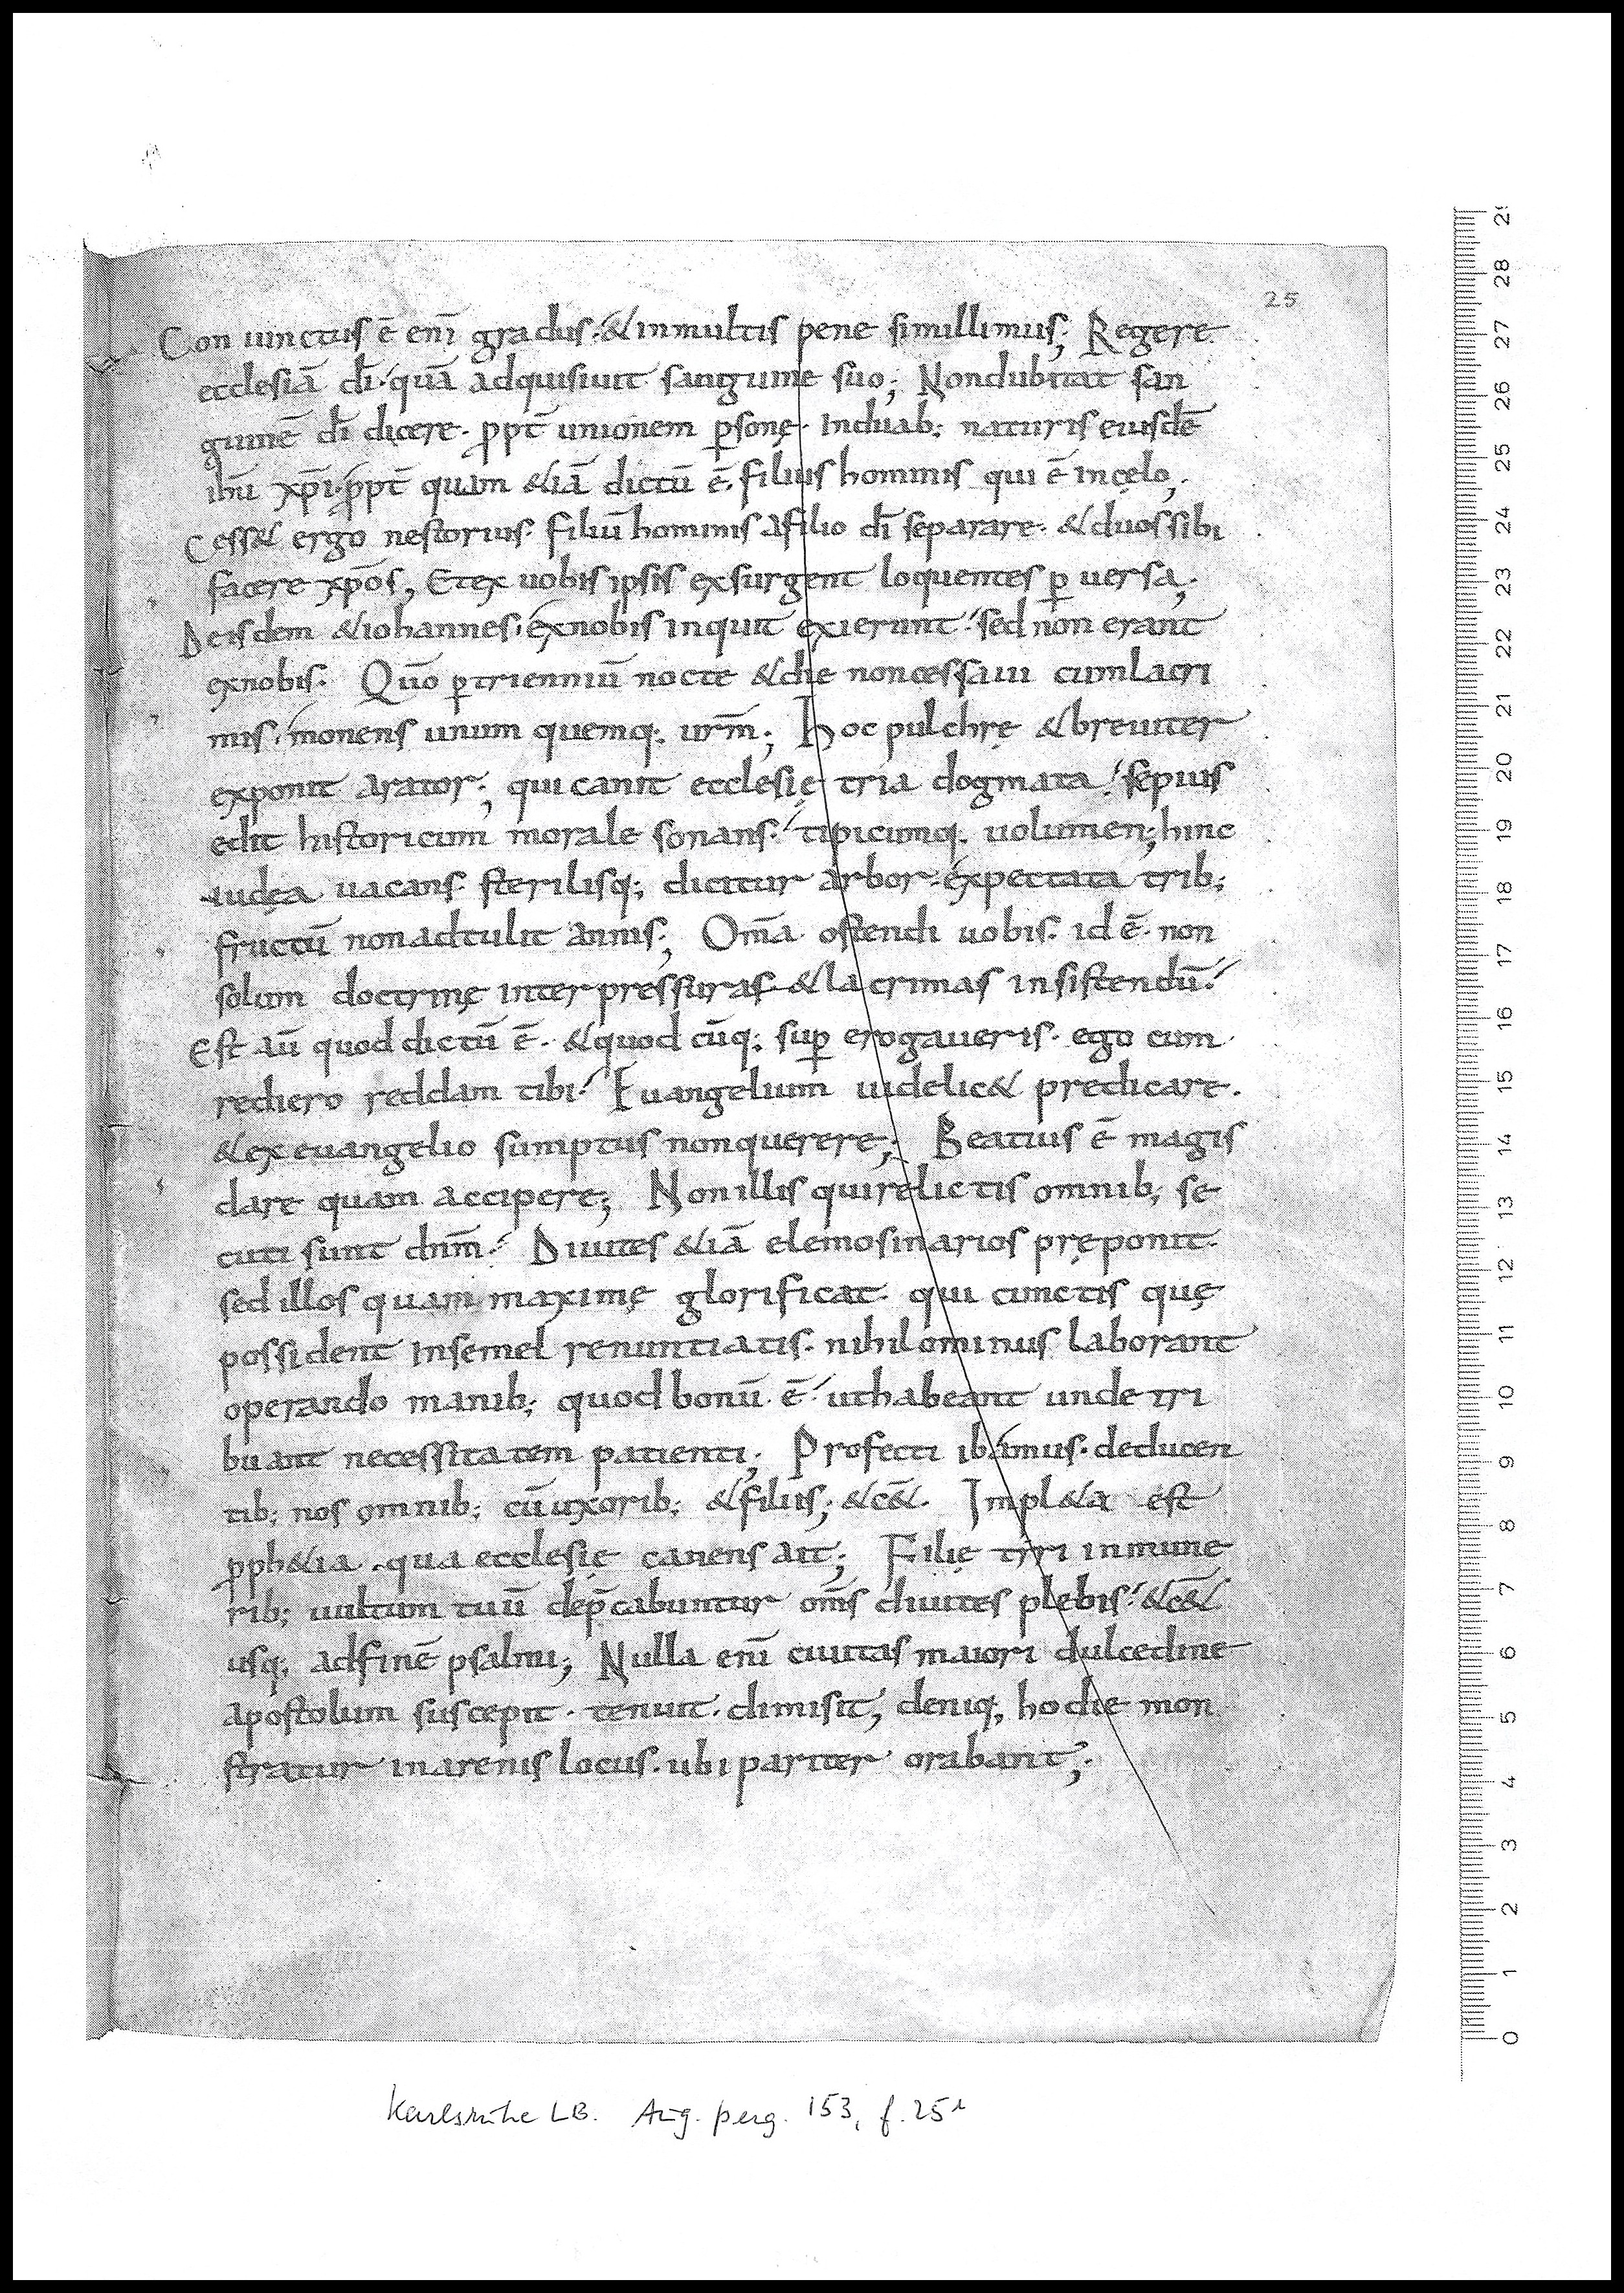 25
Con iunctus ē enī gradus. & inmultis pene simillimus; Regere
ecclesiā dī. quā adquisiuit sanguine suo; Nondubitat san
guinē dī dicere. ppt̄ unionem psonę. induab; naturis eiusdē
ihū xp̄i. ppt̄ quam &iā dictū ē. filius hominis qui ē incęlo;
Cess& ergo nestorius. filiū hominis afilio dī separare. & duos sibi
facere xp̄os; Etex uobis ipsis exsurgent loquentes p uersa;
Deisdem & iohannes. exnobis inquit exierunt. sed non erant
exnobis. Qūo ptrienniū nocte & die noncessaui cumlacri
mis. monens unum quemq; ur̄m; Hoc pulchrę & breuiter
exponit arator; qui canit ecclesię tria dogmata. sepius
edit historicum morale sonans. tipicumq. uolumen; hinc
iudęa uacans. sterilisq; dicitur arbor. expectata trib;
fructū nonadtulit annis; Om̄a ostendi uobis. id ē. non
solum doctrinę inter pressuras & lacrimas insistendū.
Est aū quod dictū ē. & quod cūq; sup erogaueris. ego cum
rediero reddam tibi. Euangelium uidelic& predicare.
& ex euangelio sumptus nonquerere; Beatius ē magis
dare quam accipere; Non illis qui relictis omnib; se
cuti sunt dnm̄. Diuites &iā elemosinarios pręponit.
sed illos quam maximę glorificat. qui cunctis quę
possident insemel renuntiatis. nihilominus laborant
operando manib; quod bonū ē. ut habeant unde tri
buant necessitatem patienti; Profecti ibamus. deducen
tib; nos omnib; cū uxorib; & filiis; &c&. Impl&a est
pph&ia. qua ecclesię canens ait; Filię tyri inmune
rib; uultum tuū dep̄cabuntur om̄s diuites plebis. &c&
usq; adfinē psalmi; Nulla enī ciuitas maiori dulcedine
apostolum suscepit. tenuit. dimisit; deniq; hodie mon
stratur inarenis locus. ubi pariter orabant;
Karlsruhe LB. Aug. perg. 153, f. 25r
29
28
27
26
25
24
23
22
21
20
19
18
17
16
15
14
13
12
11
10
9
8
7
6
5
4
3
2
1
0